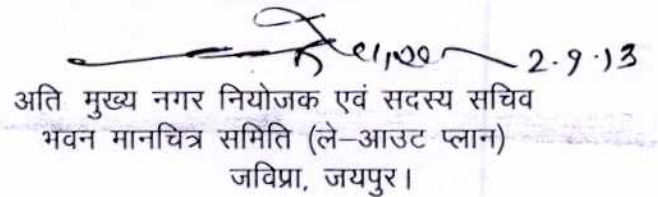 2.9.13
अति मुख्य नगर नियोजक एवं सदस्य सचिव
भवन मानचित्र समिति (ले–आउट प्लान)
जविप्रा, जयपुर।